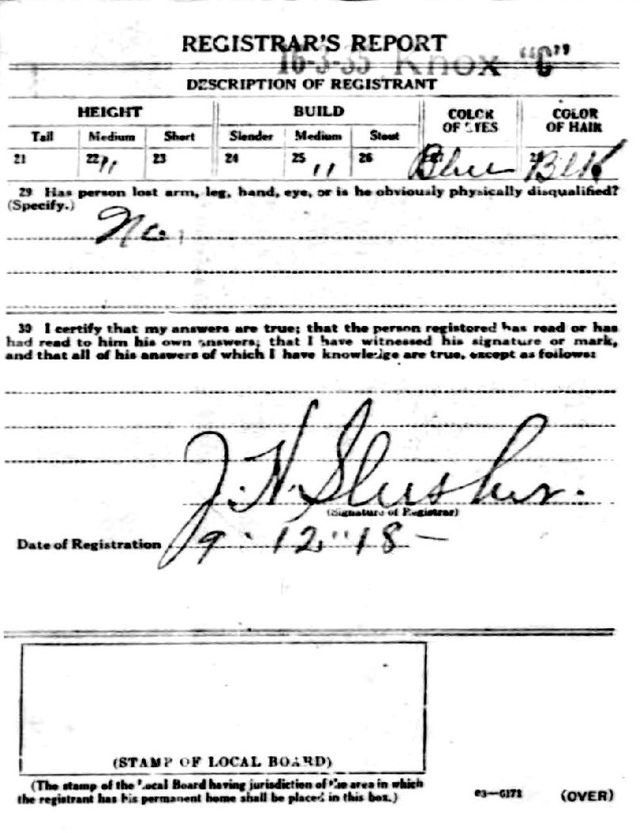 REGISTRAR'S REPORT
16-3-35 Knox "C"
DESCRIPTION OF REGISTRANT
HEIGHT BUILD COLOR OF EYES COLOR OF HAIR
Tall Medium Short Slender Medium Stout
21 22 " 23 24 25 " 26 Blue Blk
29 Has person lost arm, leg, hand, eye, or is he obviously physically disqualified?
(Specify.)
No.
30 I certify that my answers are true; that the person registered has read or has
had read to him his own answers; that I have witnessed his signature or mark,
and that all of his answers of which I have knowledge are true, except as follows:
J. H. Slusher.
(Signature of Registrar)
Date of Registration 9 - 12 " 18 -
(STAMP OF LOCAL BOARD)
(The stamp of the Local Board having jurisdiction of the area in which
the registrant has his permanent home shall be placed in this box.)
03—6171 (OVER)